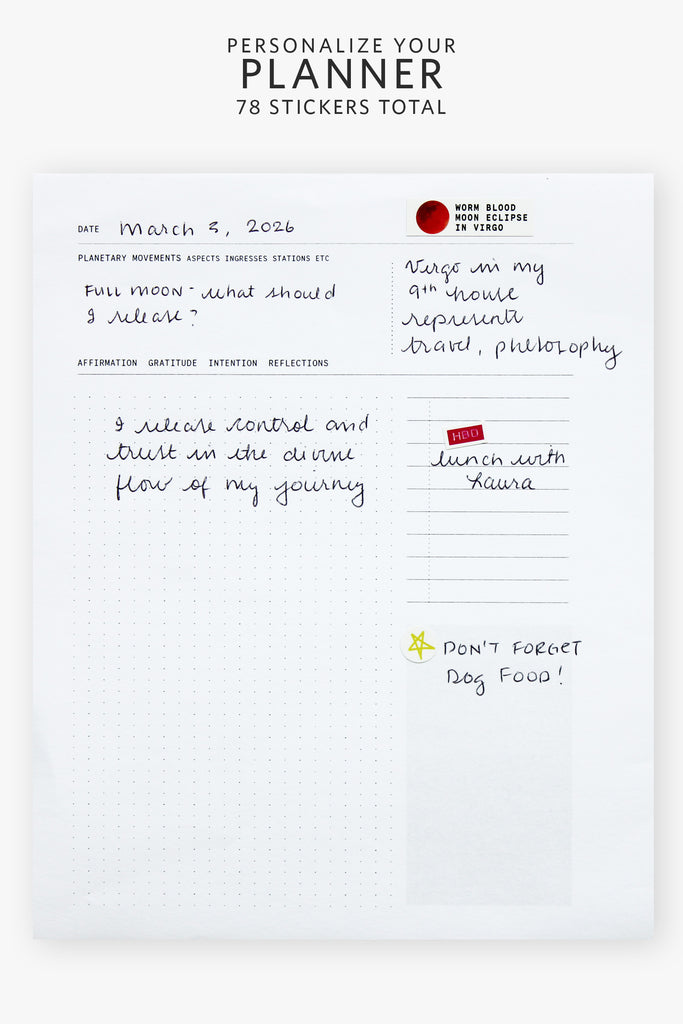 PERSONALIZE YOUR
PLANNER
78 STICKERS TOTAL
WORM BLOOD
MOON ECLIPSE
IN VIRGO
DATE March 3, 2026
PLANETARY MOVEMENTS ASPECTS INGRESSES STATIONS ETC
FULL MOON - what should
I release?
Virgo in my
9th house
represents
travel, philosophy
AFFIRMATION GRATITUDE INTENTION REFLECTIONS
I release control and
trust in the divine
flow of my journey
HBD
lunch with
Laura
DON'T FORGET
Dog FOOD!